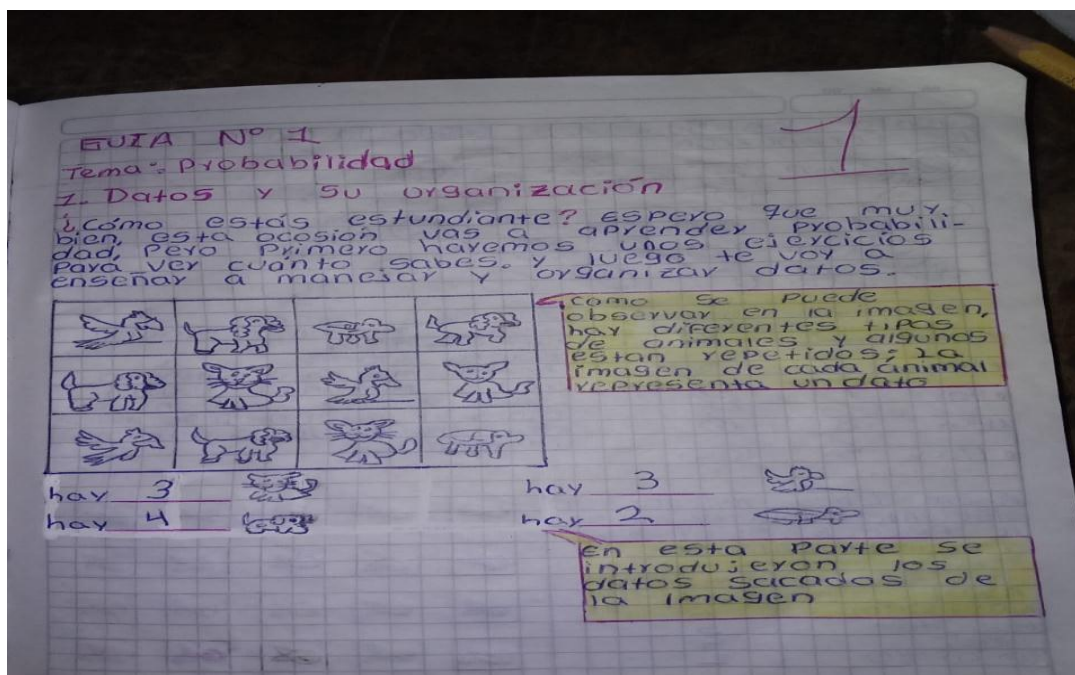 1
GUIA Nº 1
Tema: Probabilidad
1. Datos y su organización
¿Cómo estás estundiante? Espero que muy
bien, esta ocosión vas a aprender probabili-
dad, Pero Primero haremos unos ejercicios
Para ver cuánto sabes. y luego te voy a
enseñar a manejar y organizar datos.
como se puede
observar en la imagen,
hay diferentes tipas
de animales y algunos
estan repetidos; La
imagen de cada animal
representa un dato
hay 3
hay 4
hay 3
hay 2
En esta Parte se
introdujeron los
datos sacados de
la imagen